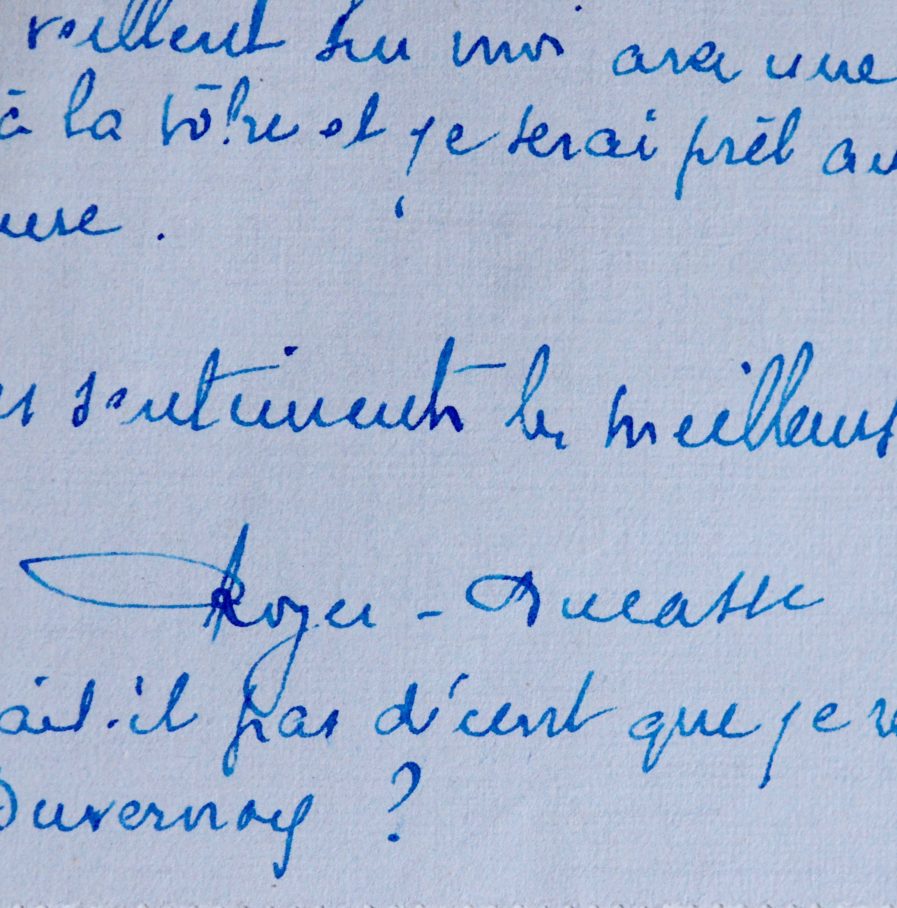 veillent sur moi avec une
à la vôtre et je serai prêt au
euse.
sentiments les meilleurs
Roger-Ducasse
ait-il pas d'ici que je
Duvernoy ?